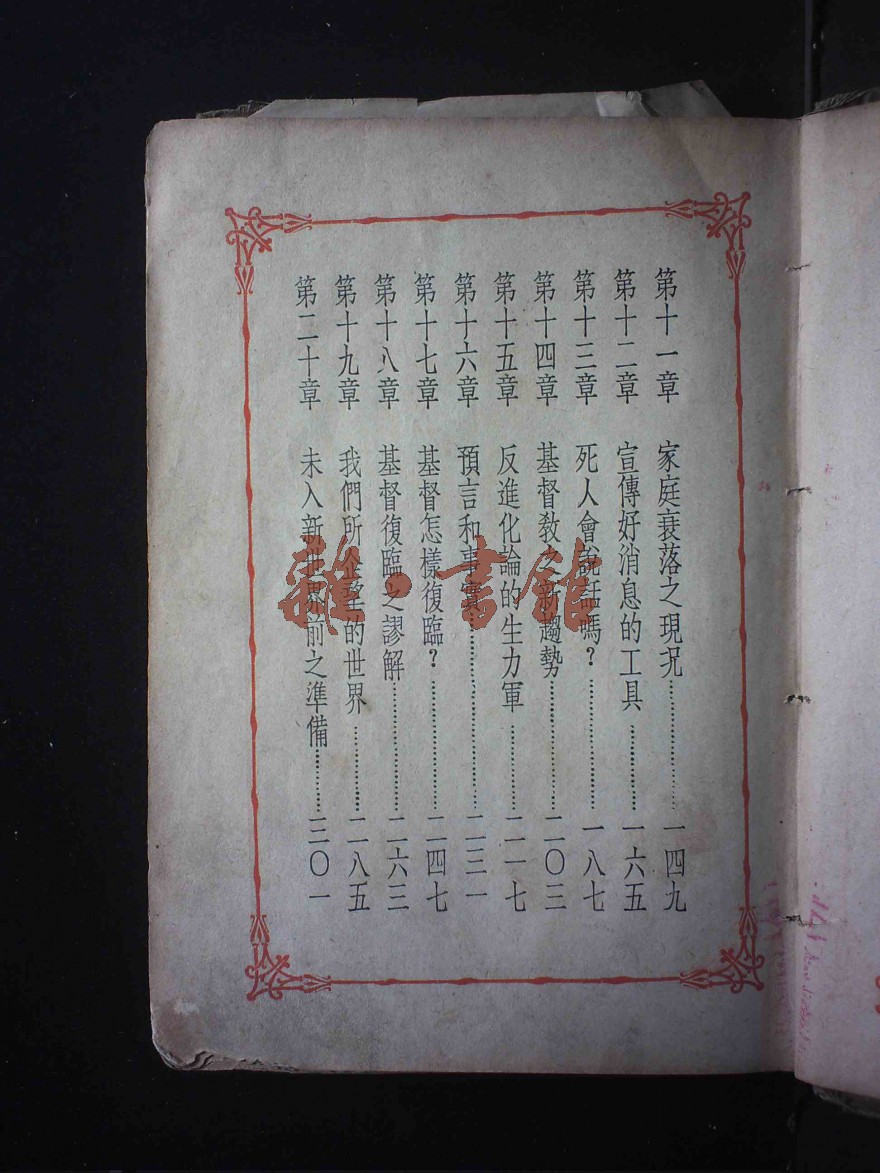 第十一章 家庭衰落之現況……………一四九
第十二章 宣傳好消息的工具……………一六五
第十三章 死人會說話嗎？……………一八七
第十四章 基督教之新趨勢……………二〇三
第十五章 反進化論的生力軍……………二一七
第十六章 預言和事實……………二三一
第十七章 基督怎樣復臨？……………二四七
第十八章 基督復臨之謬解……………二六三
第十九章 我們所企望的世界……………二八五
第二十章 未入新世界前之準備……………三〇一
雜·書館